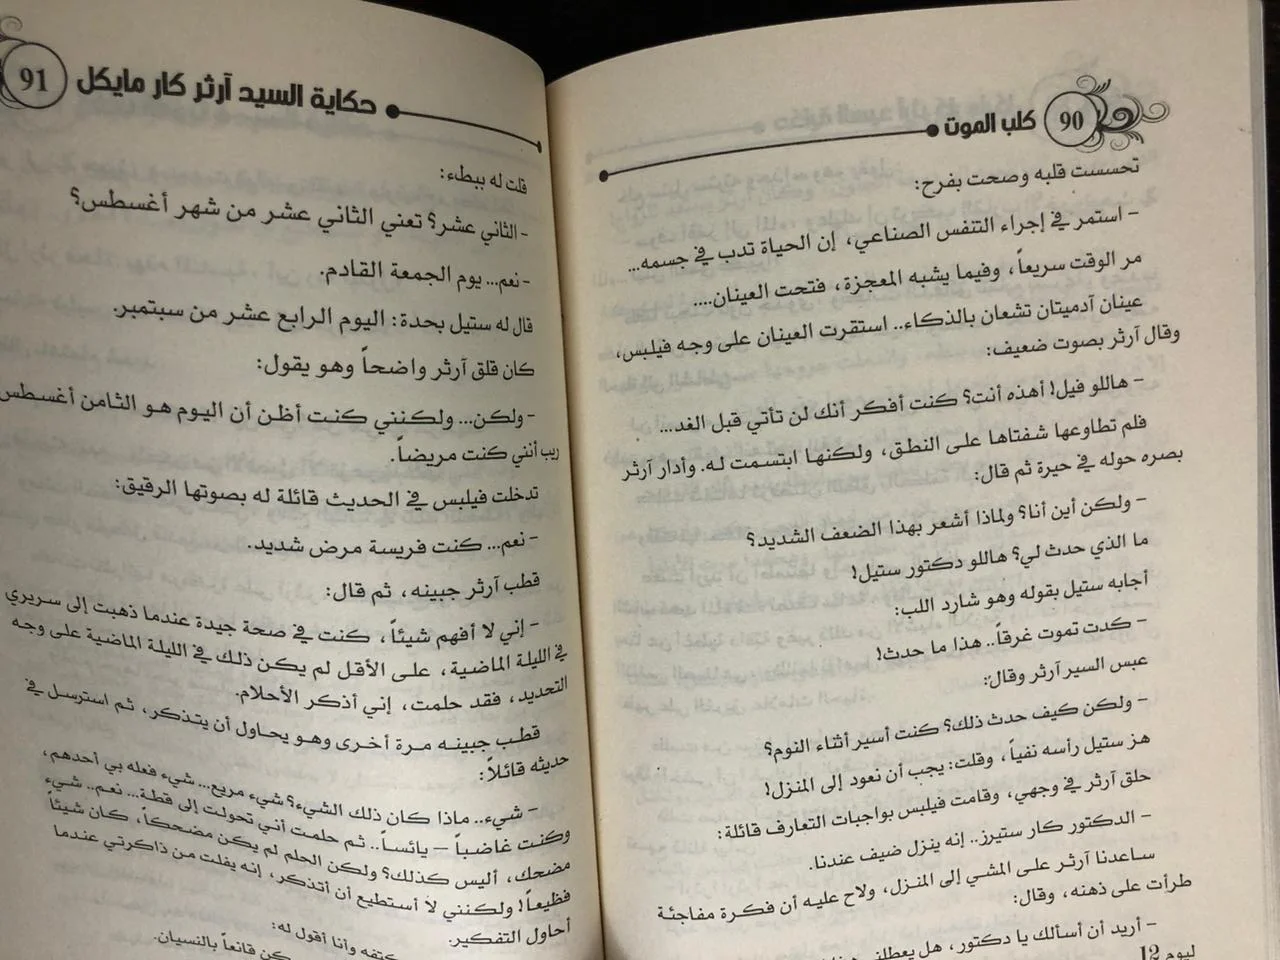 90 كلب الموت
تحسست قلبه وصحت بفرح:
- استمر في إجراء التنفس الصناعي، إن الحياة تدب في جسمه...
مر الوقت سريعاً، وفيما يشبه المعجزة، فتحت العينان....
عينان آدميتان تشعان بالذكاء.. استقرت العينان على وجه فيلبس،
وقال آرثر بصوت ضعيف:
- هاللو فيل! أهذه أنت؟ كنت أفكر أنك لن تأتي قبل الغد...
فلم تطاوعها شفتاها على النطق، ولكنها ابتسمت له. وأدار آرثر
بصره حوله في حيرة ثم قال:
- ولكن أين أنا؟ ولماذا أشعر بهذا الضعف الشديد؟
ما الذي حدث لي؟ هاللو دكتور ستيل!
أجابه ستيل بقوله وهو شارد اللب:
- كدت تموت غرقاً.. هذا ما حدث!
عبس السير آرثر وقال:
- ولكن كيف حدث ذلك؟ كنت أسير أثناء النوم؟
هز ستيل رأسه نفياً، وقلت: يجب أن نعود إلى المنزل!
حلق آرثر في وجهي، وقامت فيلبس بواجبات التعارف قائلة:
- الدكتور كار ستيرز.. إنه ينزل ضيف عندنا.
ساعدنا آرثر على المشي إلى المنزل، ولاح عليه أن فكرة مفاجئة
طرأت على ذهنه، وقال:
- أريد أن أسألك يا دكتور، هل يعطلني
ليوم 12
91 حكاية السيد آرثر كار مايكل
قلت له ببطء:
- الثاني عشر؟ تعني الثاني عشر من شهر أغسطس؟
- نعم... يوم الجمعة القادم.
قال له ستيل بحدة: اليوم الرابع عشر من سبتمبر.
كان قلق آرثر واضحاً وهو يقول:
- ولكن... ولكنني كنت أظن أن اليوم هو الثامن أغسطس
ريب أنني كنت مريضاً.
تدخلت فيلبس في الحديث قائلة له بصوتها الرقيق:
- نعم... كنت فريسة مرض شديد.
قطب آرثر جبينه، ثم قال:
- إني لا أفهم شيئاً، كنت في صحة جيدة عندما ذهبت إلى سريري
في الليلة الماضية، على الأقل لم يكن ذلك في الليلة الماضية على وجه
التحديد، فقد حلمت، إني أذكر الأحلام.
قطب جبينه مرة أخرى وهو يحاول أن يتذكر، ثم استرسل في
حديثه قائلاً:
- شيء.. ماذا كان ذلك الشيء؟ شيء مريع... شيء فعله بي أحدهم،
وكنت غاضباً – يائساً.. ثم حلمت أني تحولت إلى قطة... نعم.. شيء
مضحك، أليس كذلك؟ ولكن الحلم لم يكن مضحكاً، كان شيئاً
فظيعاً! ولكنني لا أستطيع أن أتذكر، إنه يفلت من ذاكرتي عندما
أحاول التفكير.
كتفه وأنا أقول له:
قانعاً بالنسيان.